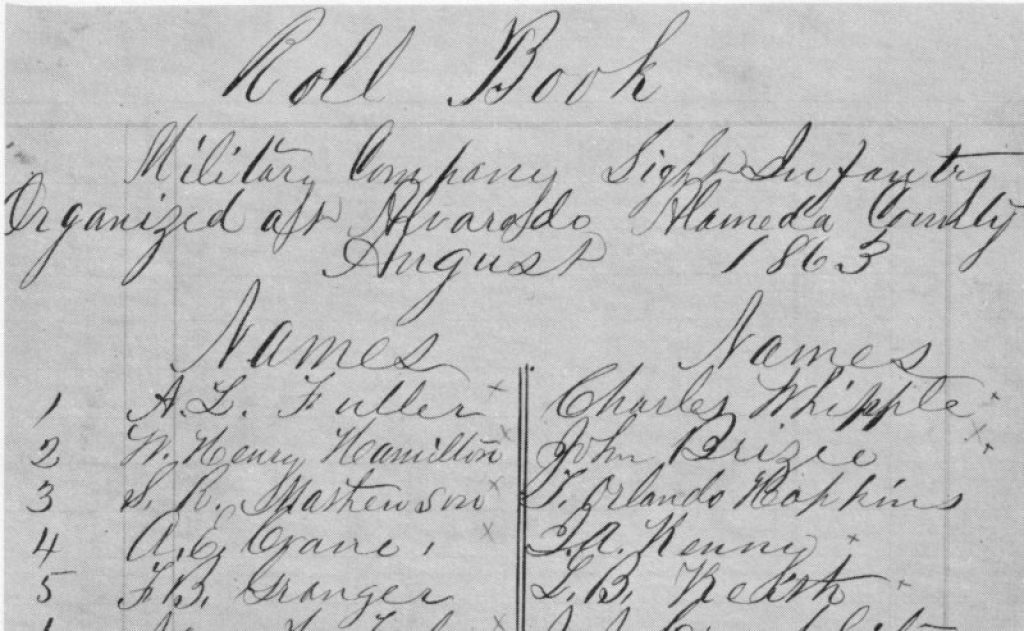 Roll Book
Military Company Light Infantry
Organized at Alvarado Alameda County
August 1863
Names Names
1 A. L. Fuller x Charles Whipple x
2 W. Henry Hamilton x John Brizee x
3 S. R. Mathewson x T. Orlando Hopkins
4 A. C. Crane x A. Kenny x
5 F. B. Granger L. B. x